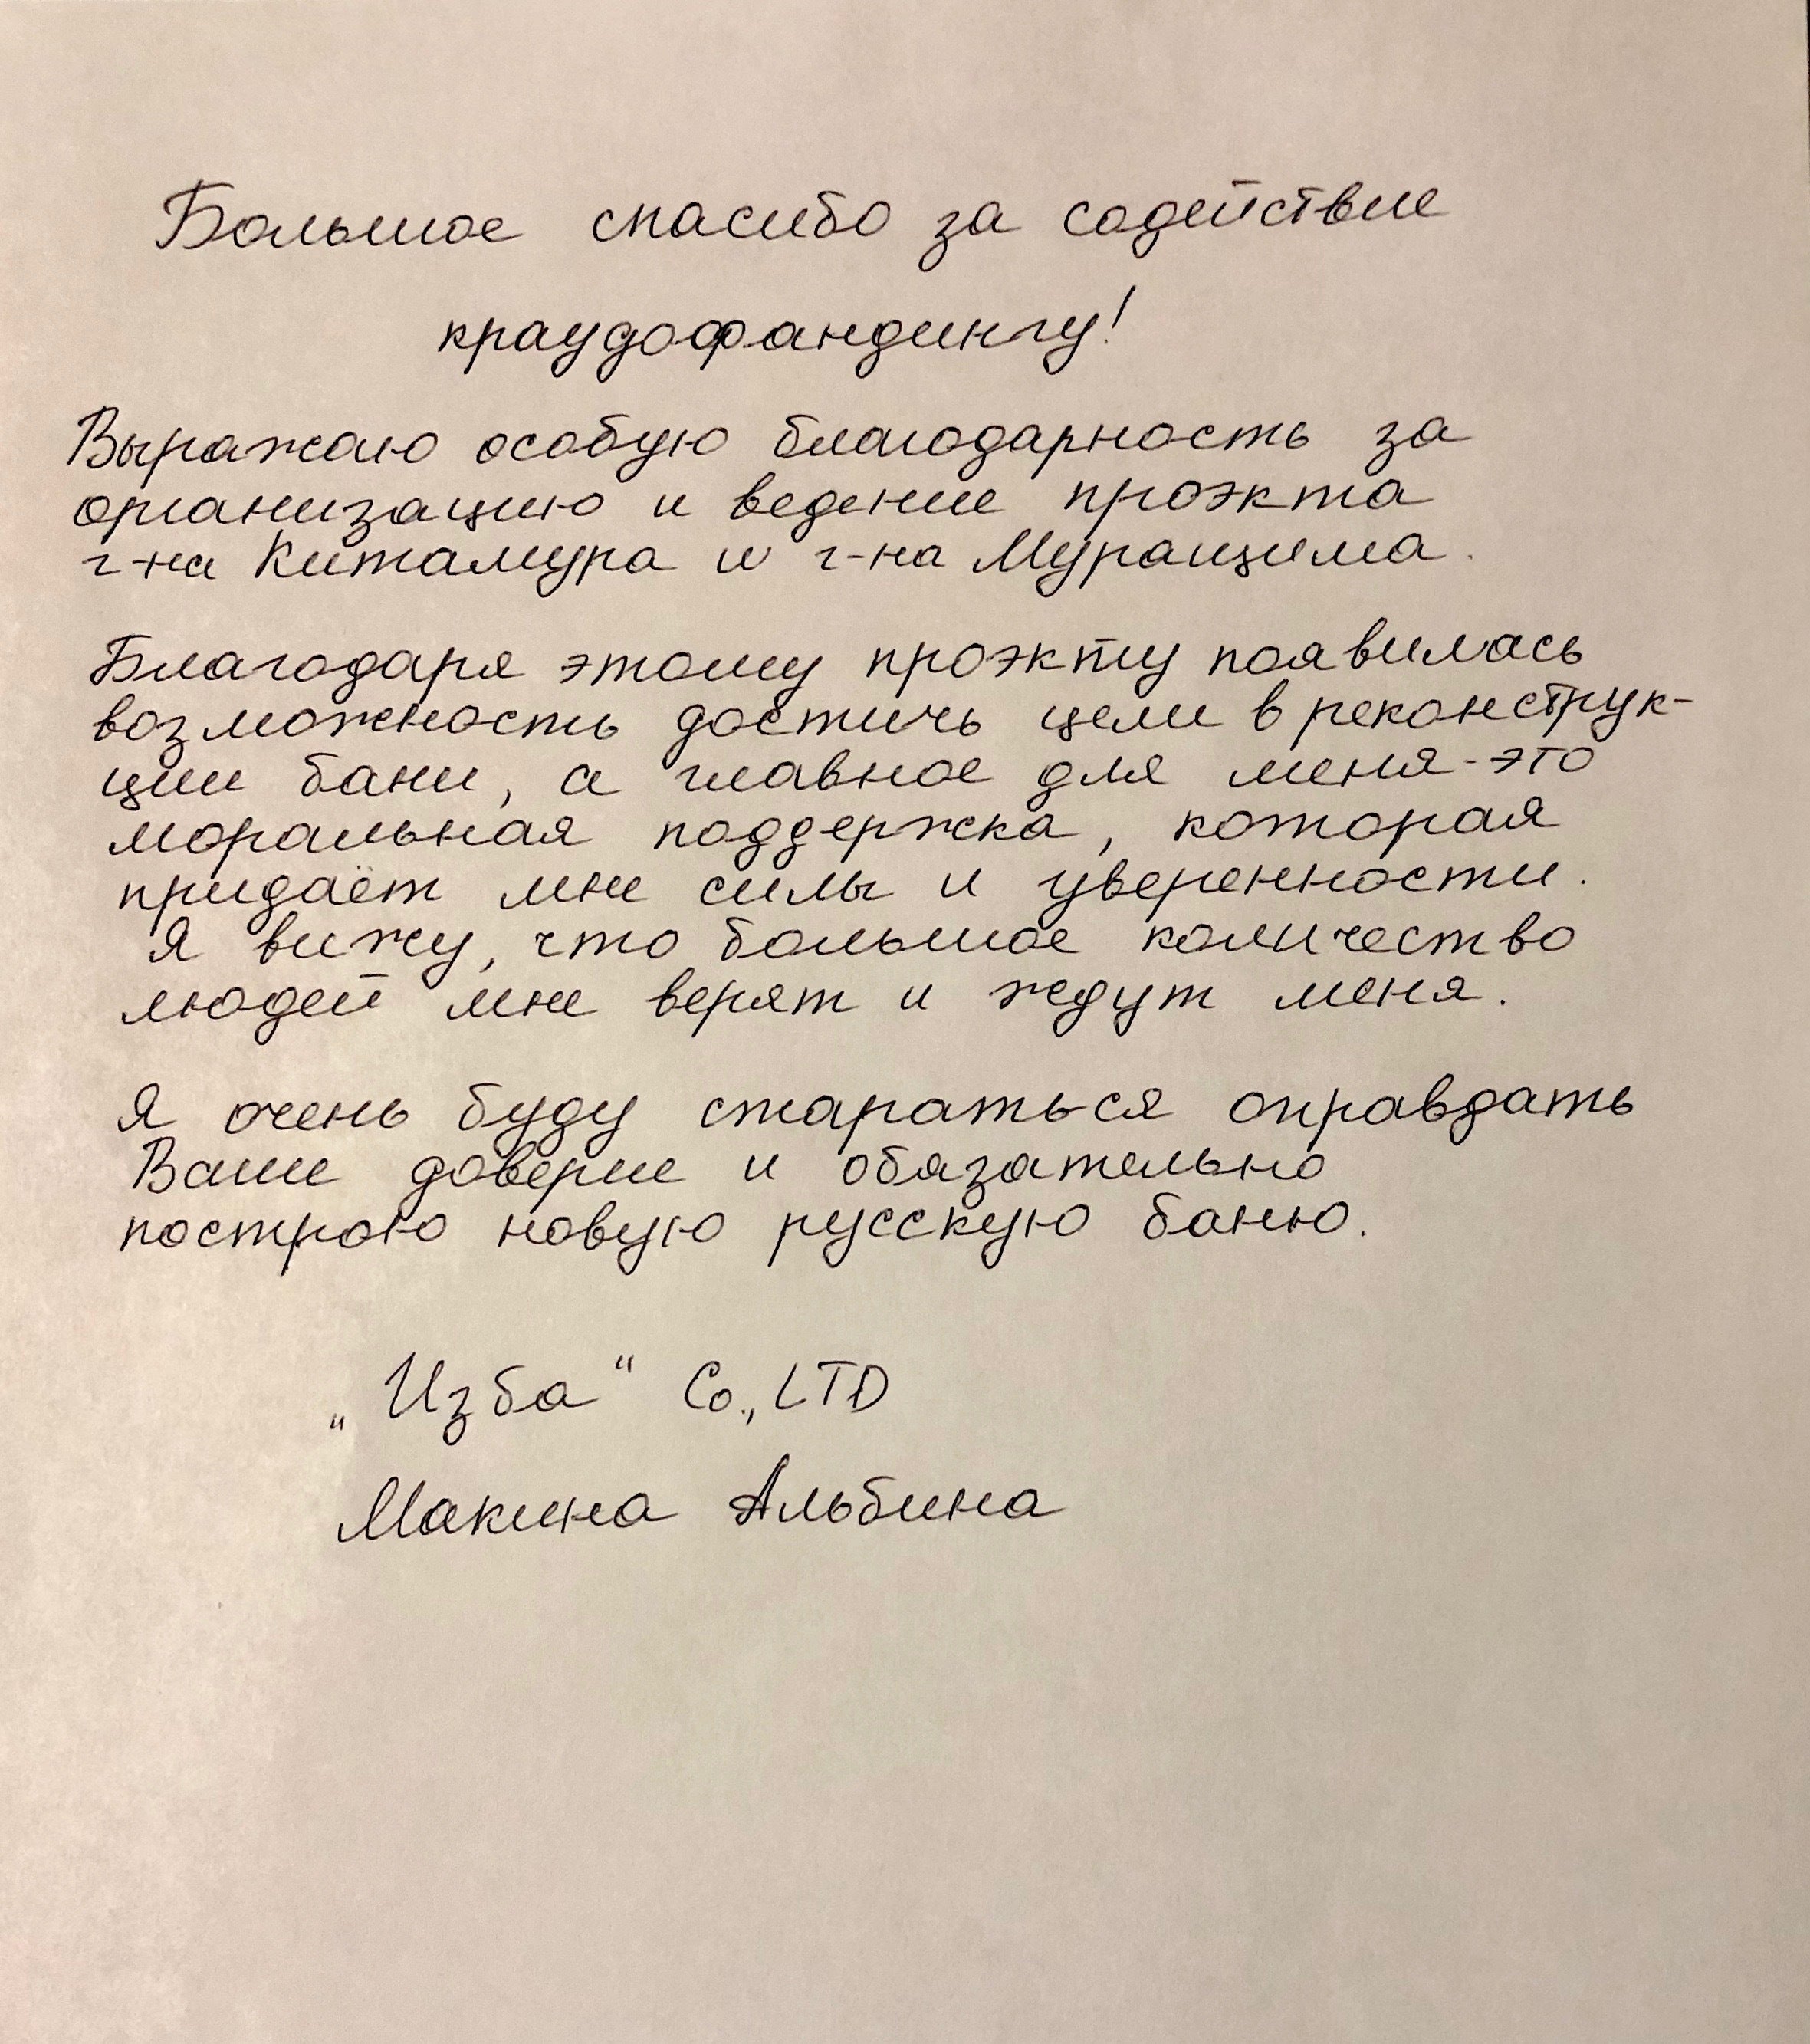 Большое спасибо за содействие
краудофандингу!
Выражаю особую благодарность за
организацию и ведение проэкта
г-на Китамура и г-на Муращима.
Благодаря этому проэкту появилась
возможность достичь цели в реконструк-
ции бани, а главное для меня - это
моральная поддержка, которая
придаёт мне силы и уверенности.
Я вижу, что большое количество
людей мне верят и ждут меня.
Я очень буду стараться оправдать
Ваше доверие и обязательно
построю новую русскую баню.
„Изба“ Co., LTD
Макина Альбина